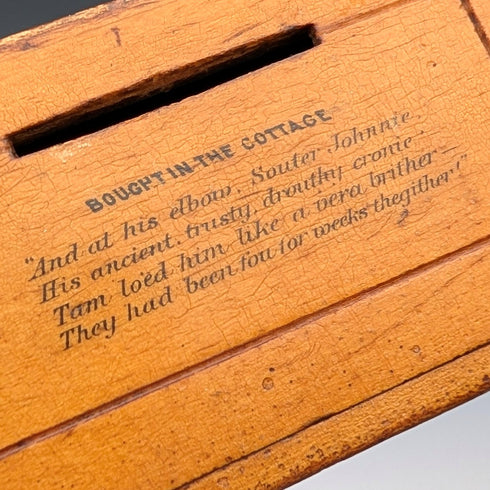 BOUGHT IN THE COTTAGE
"And at his elbow, Souter Johnnie.
His ancient, trusty, drouthy cronie.
Tam lo'ed him like a vera brither
They had been fou for weeks thegither!"